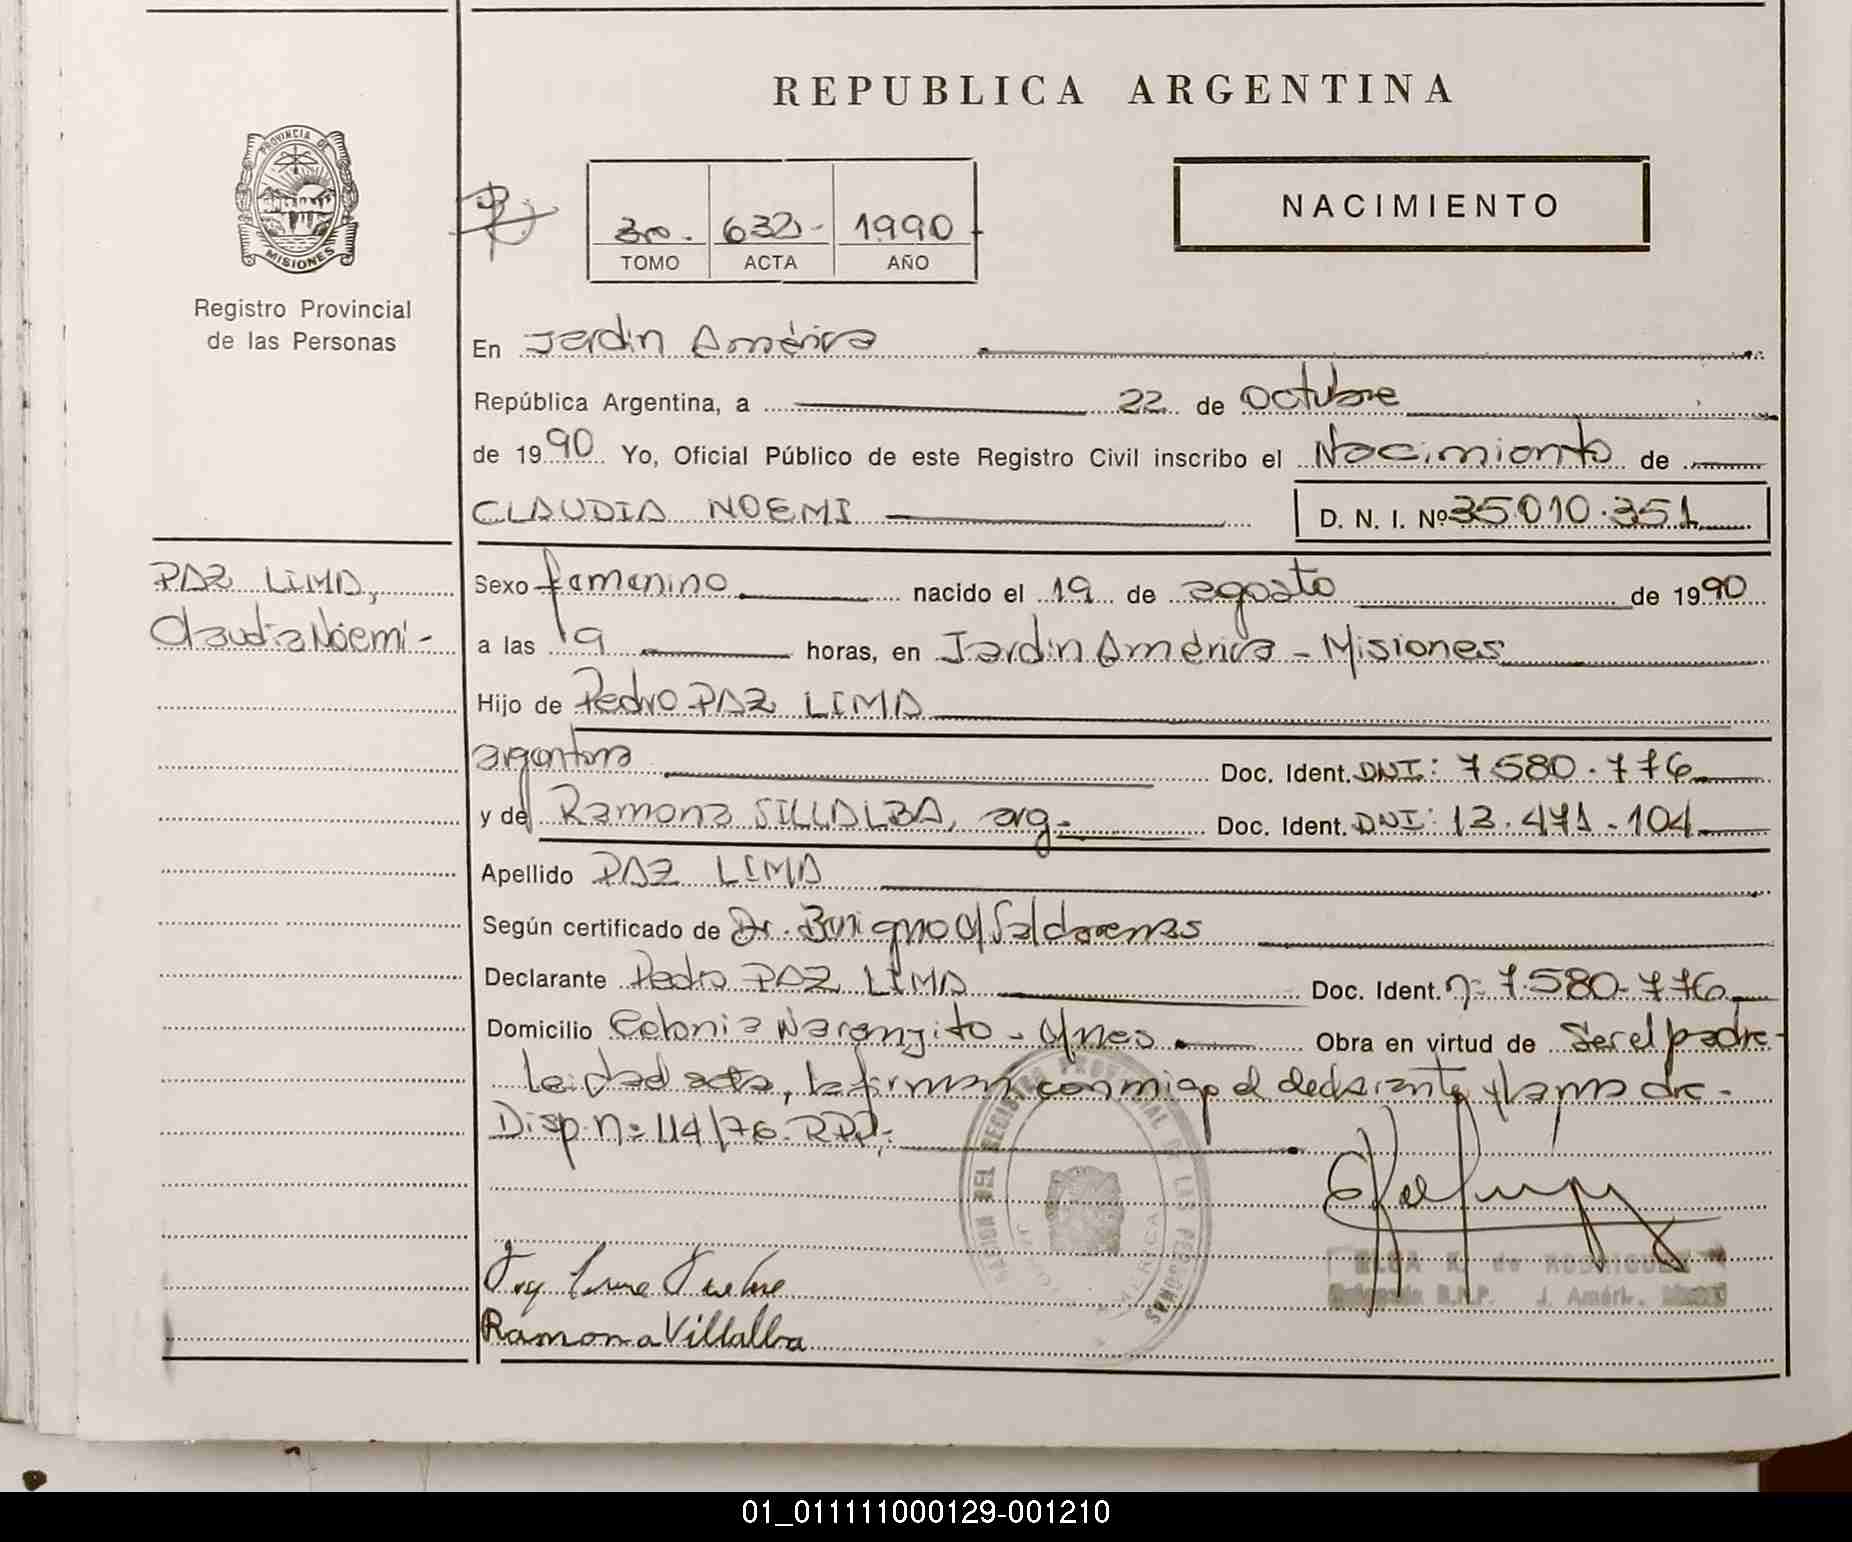 REPUBLICA ARGENTINA
PROVINCIA DE
MISIONES
Registro Provincial
de las Personas
NACIMIENTO
3ro. 632- 1990
TOMO ACTA AÑO
En Jardin América
República Argentina, a 22 de Octubre
de 1990 Yo, Oficial Público de este Registro Civil inscribo el Nacimiento de
CLAUDIA NOEMI D. N. I. Nº 35.010.351
PAZ LIMA,
Claudia Noemi-
Sexo femenino nacido el 19 de agosto de 1990
a las 19 horas, en Jardin América - Misiones
Hijo de Pedro PAZ LIMA
argentina Doc. Ident. DNI: 7.580.776
y de Ramona SILLALBA, arg- Doc. Ident. DNI: 12.471.104
Apellido PAZ LIMA
Según certificado de Dr. Benigno
Declarante Pedro PAZ LIMA Doc. Ident. nº 7.580.776
Domicilio Colonia Naranjito - Mnes Obra en virtud de Ser el padre-
Leida el acta, la firman conmigo el declarante y la madre-
Disp. nº 114/76-RPP,-
REGISTRO PROVINCIAL DE LAS PERSONAS
AMERICA
de RODRIGUEZ
R.P.P. J. Amér.
Ramona Villalba
01_011111000129-001210